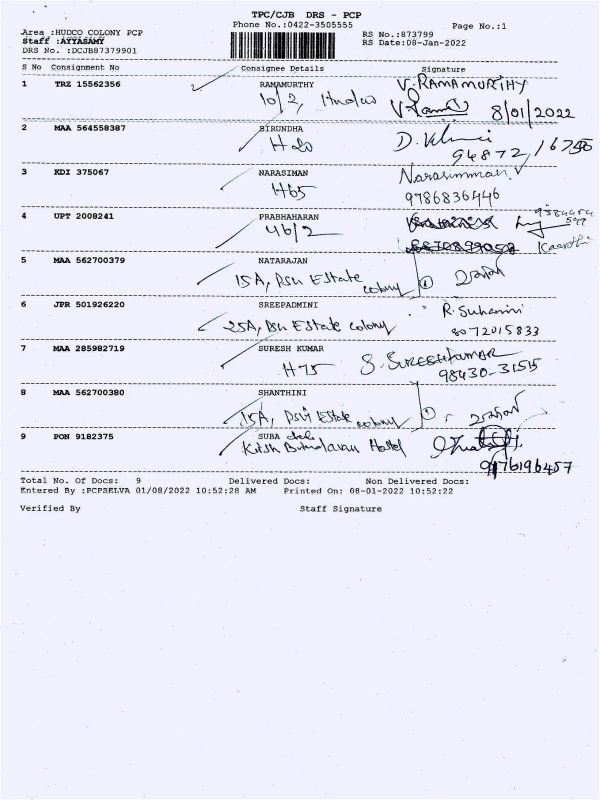 TPC/CJB DRS - PCP
Phone No.:0422-3505555
Page No.:1
Area :HUDCO COLONY PCP
RS No.:873799
Staff :AYYASAMY
RS Date:08-Jan-2022
DRS No. :DCJB87379901
S No Consignment No Consignee Details Signature
1 TRZ 15562356 RAMAMURTHY V. RAMAMURTHY
10/2, Hudco 8/01/2022
2 MAA 564558387 BIRUNDHA
H20 94872
3 KDI 375067 NARASIMAN Narasimman. V
H65 9786836446
4 UPT 2008241 PRABHAHARAN
46/2
5 MAA 562700379 NATARAJAN
15A, PSU Estate colony
6 JPR 501926220 SREEPADMINI R. Suhasini
25A, PSU Estate colony 8072015833
7 MAA 285982719 SURESH KUMAR S. SURESHKUMAR
H75 98430-31515
8 MAA 562700380 SHANTHINI
15A, PSU Estate colony
9 PON 9182375 SUBA
Hostel
9176196457
Total No. Of Docs: 9 Delivered Docs: Non Delivered Docs:
Entered By :PCPSELVA 01/08/2022 10:52:28 AM Printed On: 08-01-2022 10:52:22
Verified By Staff Signature